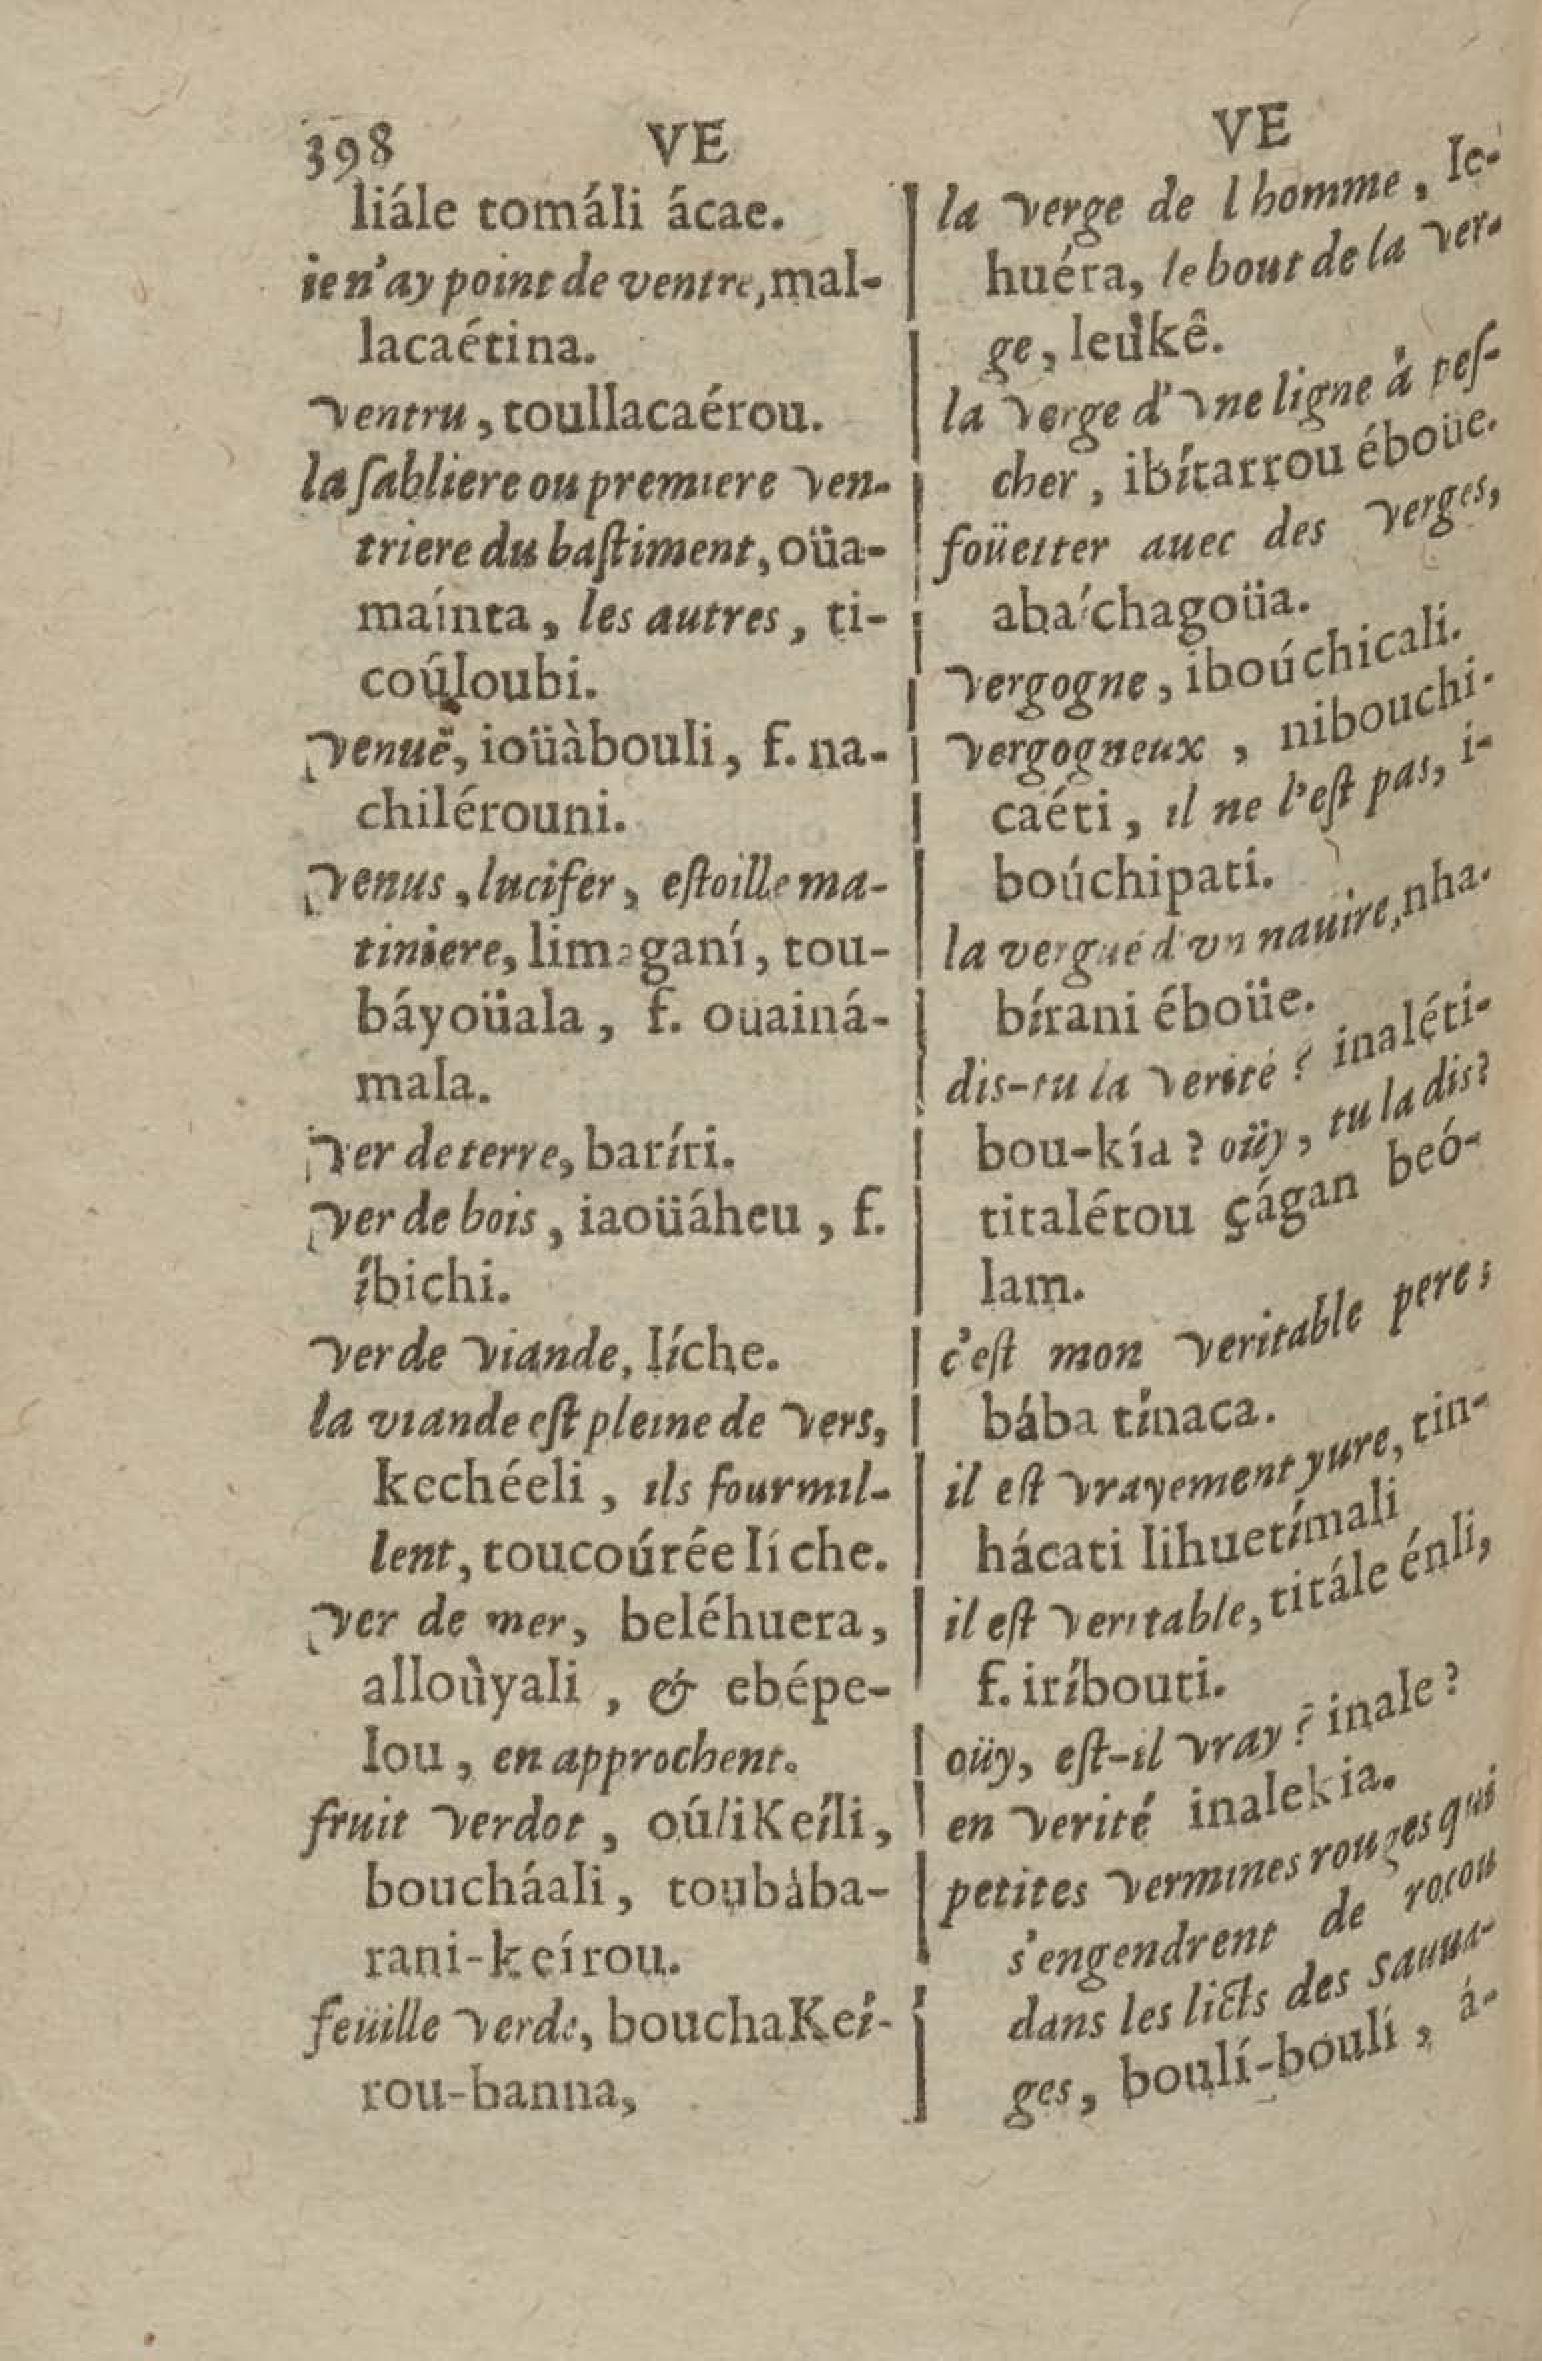 398 VE
liále tomáli ácae.
ie n'ay point de ventre, mal-
lacaétina.
ventru, toullacaérou.
la sabliere ou premiere ven-
triere du bastiment, oüa-
maínta, les autres, ti-
coúloubi.
venuë, ioüàbouli, f. na-
chilérouni.
Venus, lucifer, estoille ma-
tiniere, limagani, tou-
báyoüala, f. ouainá-
mala.
ver de terre, baríri.
ver de bois, iaoüáheu, f.
íbichi.
ver de viande, Iíche.
la viande est pleine de vers,
kechéeli, ils fourmil-
lent, toucoúrée Iíche.
ver de mer, beléhuera,
alloùyali, & ebépe-
lou, en approchent.
fruit verdot, oúliKeíli,
boucháali, toubába-
rani-keírou.
feüille verde, bouchaKeí-
rou-banna,
VE
la verge de lhomme, Ie-
huéra, le bout de la ver-
ge, leúkê.
la verge d'vne ligne à pes-
cher, ibítarrou éboüe.
foüetter auec des verges,
abaíchagoüa.
vergogne, iboúchicali.
vergogneux, nibouchi-
caéti, il ne l'est pas, i-
boúchipati.
la vergue d'vn nauire, nha-
bírani éboüe.
dis-tu la verité? inaléti-
bou-kía? oüy, tu la dis?
titalétou çágan beó-
lam.
c'est mon veritable pere;
bába tínaca.
il est vrayement yure, tin-
hácati lihuetímali
il est veritable, titále énli,
f. iríbouti.
oüy, est-il vray? inale?
en verité inalekia.
petites vermines rouges qui
s'engendrent de rocou
dans les licts des sauua-
ges, boulí-bouli, á-